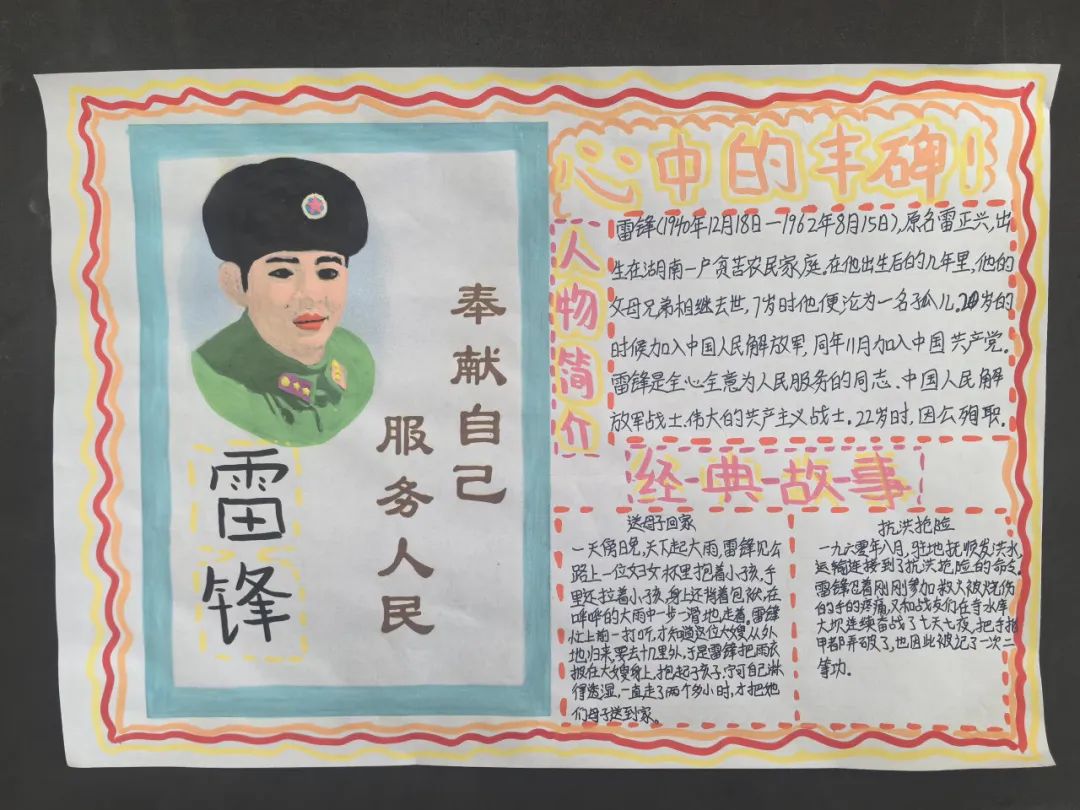 心中的丰碑！
人物简介
雷锋(1940年12月18日—1962年8月15日),原名雷正兴,出
生在湖南一户贫苦农民家庭.在他出生后的几年里,他的
父母兄弟相继去世,7岁时他便沦为一名孤儿.20岁的
时候加入中国人民解放军,同年11月加入中国共产党.
雷锋是全心全意为人民服务的同志.中国人民解
放军战士伟大的共产主义战士.22岁时,因公殉职.
奉献自己
服务人民
雷锋
经典故事
送母子回家
一天傍日免,天下起大雨,雷锋见公
路上一位妇女怀里抱着小孩,手
里还拉着小孩,身上还背着包袱,在
哗哗的大雨中一步一滑地走着.雷锋
忙上前一打听,才知道这位大嫂从外
地归来,要去十几里外,于是雷锋把雨衣
披在大嫂身上,抱起了孩子.宁可自己淋
得透湿,一直走了两个多小时,才把她
们母子送到家。
抗洪抢险
一九六零年八月,驻地抚顺发洪水,
运输连接到了抗洪抢险的命令.
雷锋忍着刚刚参加救火被烧伤
的手的疼痛,又和战友们在寺水库
大坝连续奋战了七天七夜,把手指
甲都弄破了,也因此被记了一次二
等功.